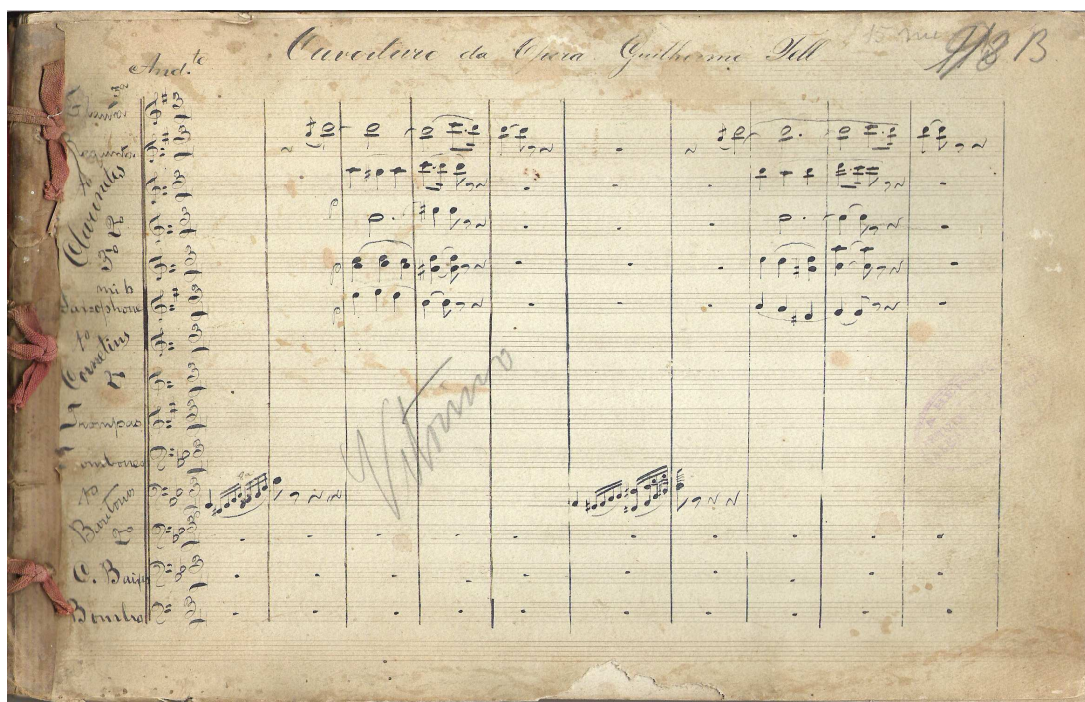 Ouverture da Opera Guilherme Tell
And.te
Requinta
1o
Clarinetes
2o
3o
mi b
Saxophone
1o
Cornetins
2o
Trompas
Trombones
1o
Barítono
2o
C. Baixo
Bombo